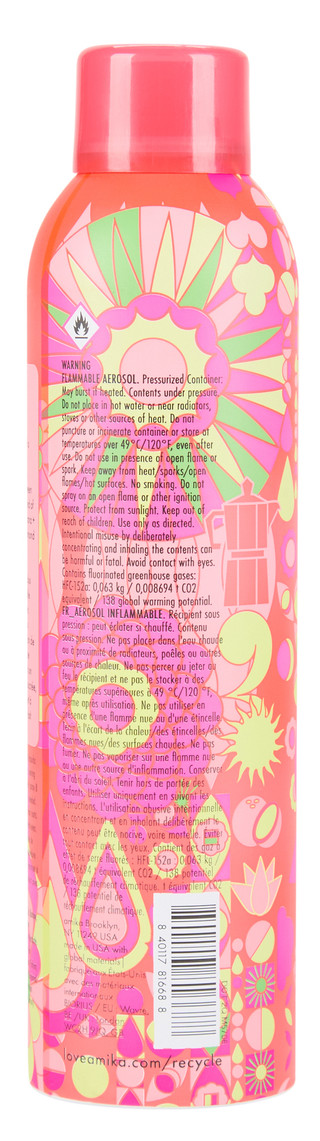 WARNING
FLAMMABLE AEROSOL. Pressurized Container:
May burst if heated. Contents under pressure.
Do not place in hot water or near radiators,
stoves or other sources of heat. Do not
puncture or incinerate container or store at
temperatures over 49°C/120°F, even after
use. Do not use in presence of open flame or
spark. Keep away from heat/sparks/open
flames/hot surfaces. No smoking. Do not
spray on an open flame or other ignition
source. Protect from sunlight. Keep out of
reach of children. Use only as directed.
Intentional misuse by deliberately
concentrating and inhaling the contents can
be harmful or fatal. Avoid contact with eyes.
Contains fluorinated greenhouse gases:
HFC-152a: 0,063 kg / 0,008694 t CO2
equivalent / 138 global warming potential.
FR_AÉROSOL INFLAMMABLE. Récipient sous
pression : peut éclater si chauffé. Contenu
sous pression. Ne pas placer dans l'eau chaude
ou à proximité de radiateurs, poêles ou autres
sources de chaleur. Ne pas percer ou jeter au
feu le récipient et ne pas le stocker à des
températures supérieures à 49 °C/120 °F,
même après utilisation. Ne pas utiliser en
présence d'une flamme nue ou d'une étincelle.
Tenir à l'écart de la chaleur/des étincelles/des
flammes nues/des surfaces chaudes. Ne pas
fumer. Ne pas vaporiser sur une flamme nue
ou une autre source d'inflammation. Conserver
à l'abri du soleil. Tenir hors de portée des
enfants. Utiliser uniquement en suivant les
instructions. L'utilisation abusive intentionnelle
en concentrant et en inhalant délibérément le
contenu peut être nocive, voire mortelle. Éviter
contact avec les yeux. Contient des gaz à
effet de serre fluorés : HFC-152a 0,063 kg/
CO2 / 138 potentiel
de réchauffement climatique. t équivalent CO2
138 potentiel de
réchauffement climatique.
amika Brooklyn,
NY 11249 USA
made in USA with
global materials |
fabriqué aux États-Unis
avec des matériaux
8 40117 81668 8
loveamika.com/recycle